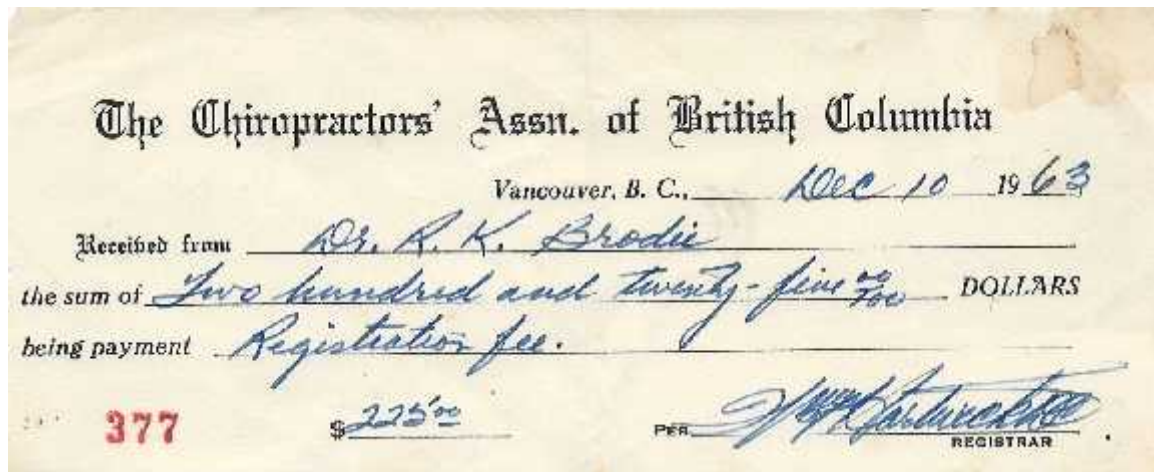 The Chiropractors' Assn. of British Columbia
Vancouver, B. C., Dec 10 1963
Received from Dr. R. K. Brodie
the sum of Two hundred and twenty-five 00/100 DOLLARS
being payment Registration fee.
377 $225.00 PER
REGISTRAR